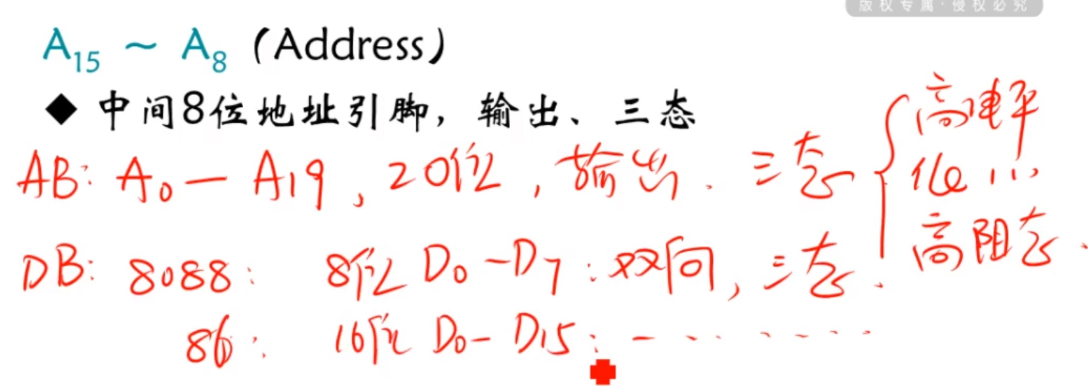 版权专属·侵权必究
A15 ~ A8 (Address)
◆ 中间8位地址引脚，输出、三态
AB: A0 — A19, 20位, 输出. 三态 { 高电平
低 〃
高阻态.
DB: 8088: 8位 D0-D7: 双向, 三态.
86: 16位 D0- D15: - - - - - - -